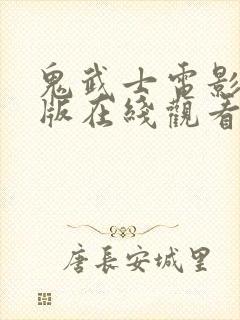 鬼武士電影
版在綫觀看
唐長安城里